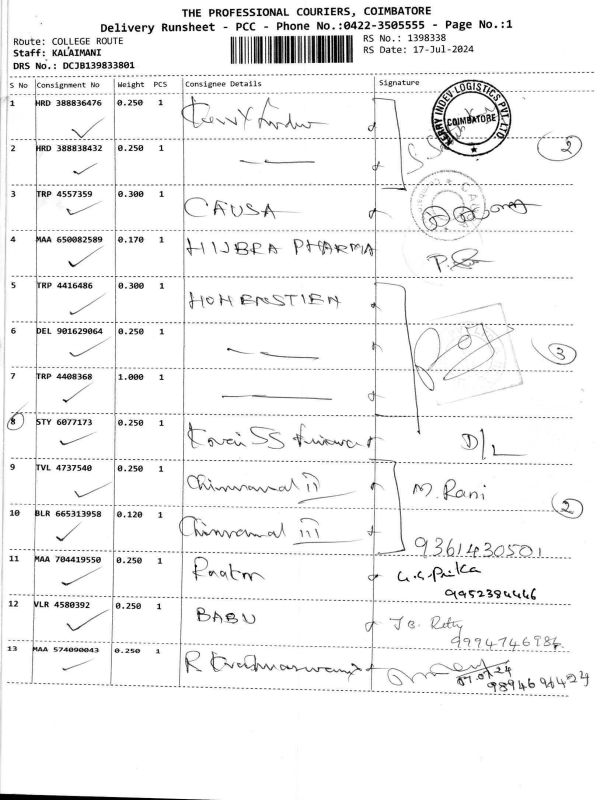 THE PROFESSIONAL COURIERS, COIMBATORE
Delivery Runsheet - PCC - Phone No.:0422-3505555 - Page No.:1
Route: COLLEGE ROUTE RS No.: 1398338
Staff: KALAIMANI RS Date: 17-Jul-2024
DRS No.: DCJB139833801
S No Consignment No Weight PCS Consignee Details Signature
1 HRD 388836476 0.250 1
KERRY INDEV LOGISTICS PVT. LTD. COIMBATORE
2 HRD 388838432 0.250 1 2
3 TRP 4557359 0.300 1 CAUSA
4 MAA 650082589 0.170 1 HIJBRA PHARMA
5 TRP 4416486 0.300 1 HOHENSTIEN
6 DEL 901629064 0.250 1 3
7 TRP 4408368 1.000 1
8 STY 6077173 0.250 1 Kovai SS D/L
9 TVL 4737540 0.250 1 Chinnamal II M. Rani
10 BLR 665313958 0.120 1 Chinnamal III 2
9361430501
11 MAA 704419550 0.250 1
9952384446
12 VLR 4580392 0.250 1 BABU
13 MAA 574090043 0.250 1 R